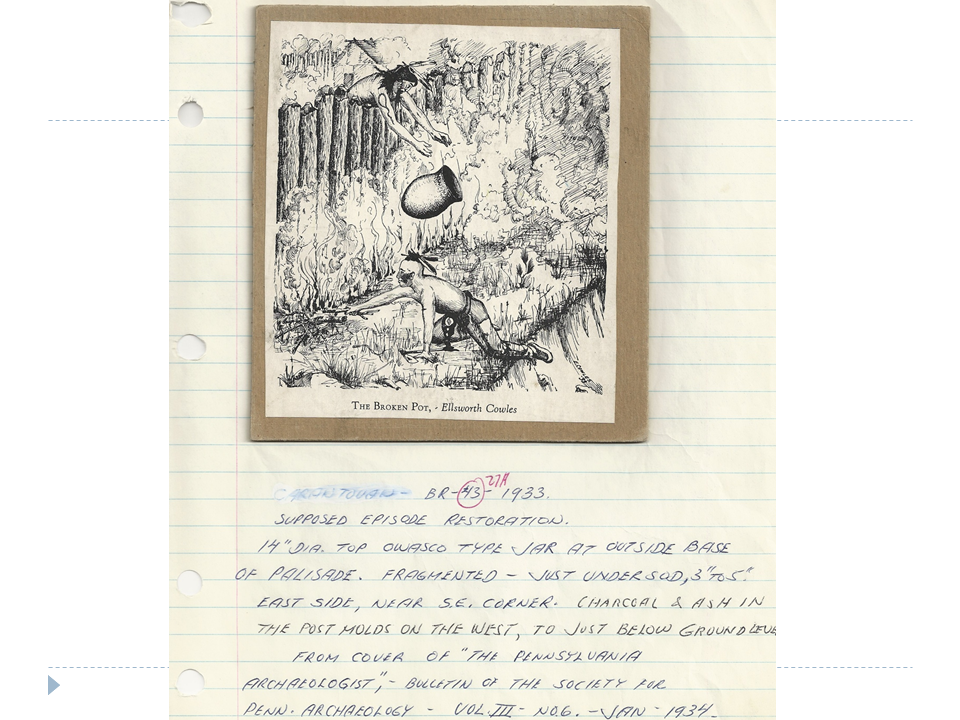 THE BROKEN POT, - Ellsworth Cowles
27A
BR-#43- 1933.
SUPPOSED EPISODE RESTORATION.
14" DIA. TOP OWASCO TYPE JAR AT OUTSIDE BASE
OF PALISADE. FRAGMENTED - JUST UNDER SOD, 3" TO 5".
EAST SIDE, NEAR S.E. CORNER. CHARCOAL & ASH IN
THE POST MOLDS ON THE WEST, TO JUST BELOW GROUND LEVE
FROM COVER OF "THE PENNSYLVANIA
ARCHAEOLOGIST", - BULLETIN OF THE SOCIETY FOR
PENN. ARCHAEOLOGY - VOL. III - NO. 6. - JAN - 1934.